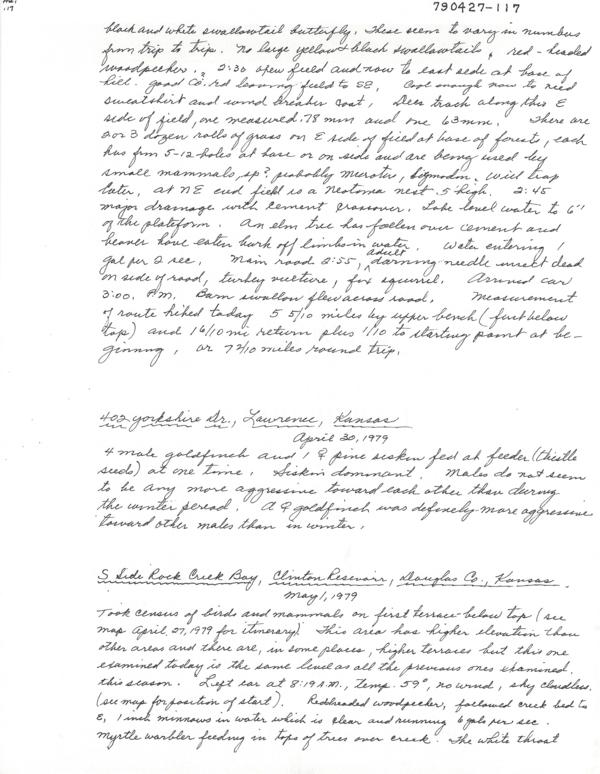 790427-117
black and white swallowtail butterfly. These seem to vary in numbers
from trip to trip. No large yellow & black swallowtails, red-headed
woodpecker. 2:30 open field and now to east side at base of
hill. good Co. rd leaving field to SE. Cool enough now to need
sweatshirt and wind breaker coat. Deer track along this E
side of field, one measured 78 mm and one 63 mm. There are
2 or 3 dozen rolls of grass on E side of field at base of forest, each
has from 5-12 holes at base or on side and are being used by
small mammals, sp? probably Microtus, Sigmodon. Will trap
later. At NE end field is a Neotoma nest 5' high. 2:45
major drainage with cement crossover. Lake level water to 6"
of the plateform. An elm tree has fallen over cement and
beaver have eaten bark off limbs in water. Water entering 1
gal per 2 sec. Main road 2:55, adult darning needle insect dead
on side of road, turkey vulture, fox squirrel. Arrived car
3:00 P.M. Barn swallow flew across road. Measurement
of route hiked today 5 5/10 miles by upper bench (first below
top) and 1 6/10 mi return plus 1/10 to starting point at be-
ginning, or 7 2/10 miles round trip.
402 Yorkshire Dr., Lawrence, Kansas
April 30, 1979
4 male goldfinch and 1 ♀ pine siskin fed at feeder (thistle
seeds) at one time. Siskin dominant. Males do not seem
to be any more aggressive toward each other than during
the winter period. A ♀ goldfinch was definely more aggressive
toward other males than in winter.
S Side Rock Creek Bay, Clinton Resevoir, Douglas Co., Kansas
May 1, 1979
Took census of birds and mammals on first terrace below top (see
map April 27, 1979 for itinerary). This area has higher elevation than
other areas and there are, in some places, higher terraces but this one
examined today is the same level as all the previous ones examined
this season. Left car at 8:19 A.M., temp. 59°, no wind, sky cloudless.
(see map for position of start). Redheaded woodpecker, followed creek bed to
E, 1 inch minnows in water which is clear and running 6 gals per sec.
Myrtle warbler feeding in tops of trees over creek. The white throat